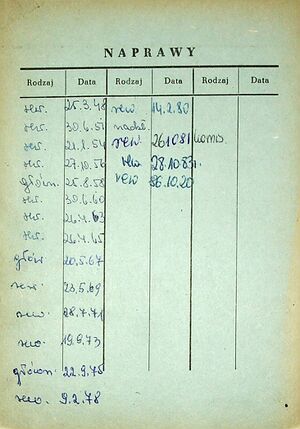 NAPRAWY
Rodzaj Data Rodzaj Data Rodzaj Data
rew. 25.3.48 rew. 14.2.80
rew. 30.6.51
rew. 21.1.54 rew. 261081
rew. 27.10.56 rew 28.10.83r.
główn. 25.8.58 rew 26.10.20
rew. 30.6.60
rew. 26.4.63
rew. 26.4.65
główn. 20.5.67
rew. 23.5.69
rew. 28.7.71
rew. 19.9.73
główn. 22.9.75
rew. 9.2.78